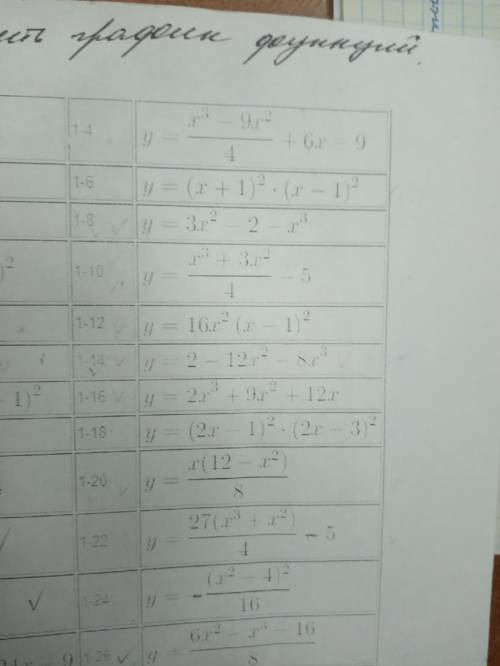 график функций.
1-4 y = \frac{x^3 - 9x^2}{4} + 6x - 9
1-6 y = (x + 1)^2 · (x - 1)^2
1-8 y = 3x^2 - 2 - x^3
)^2 1-10 y = \frac{x^3 + 3x^2}{4} - 5
1-12 y = 16x^2 (x - 1)^2
1-14 y = 2 - 12x^2 - 8x^3
- 1)^2 1-16 y = 2x^3 + 9x^2 + 12x
1-18 y = (2x - 1)^2 · (2x - 3)^2
1-20 y = \frac{x(12 - x^2)}{8}
1-22 y = \frac{27(x^3 + x^2)}{4} - 5
1-24 y = -\frac{(x^2 - 4)^2}{16}
- 9 1-26 y = \frac{6x^2 - x^3 - 16}{8}